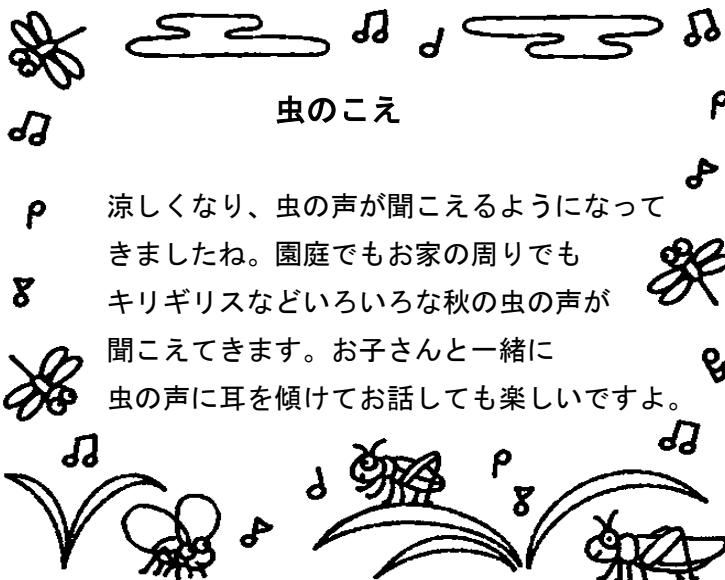 虫のこえ
涼しくなり、虫の声が聞こえるようになって
きましたね。園庭でもお家の周りでも
キリギリスなどいろいろな秋の虫の声が
聞こえてきます。お子さんと一緒に
虫の声に耳を傾けてお話しても楽しいですよ。